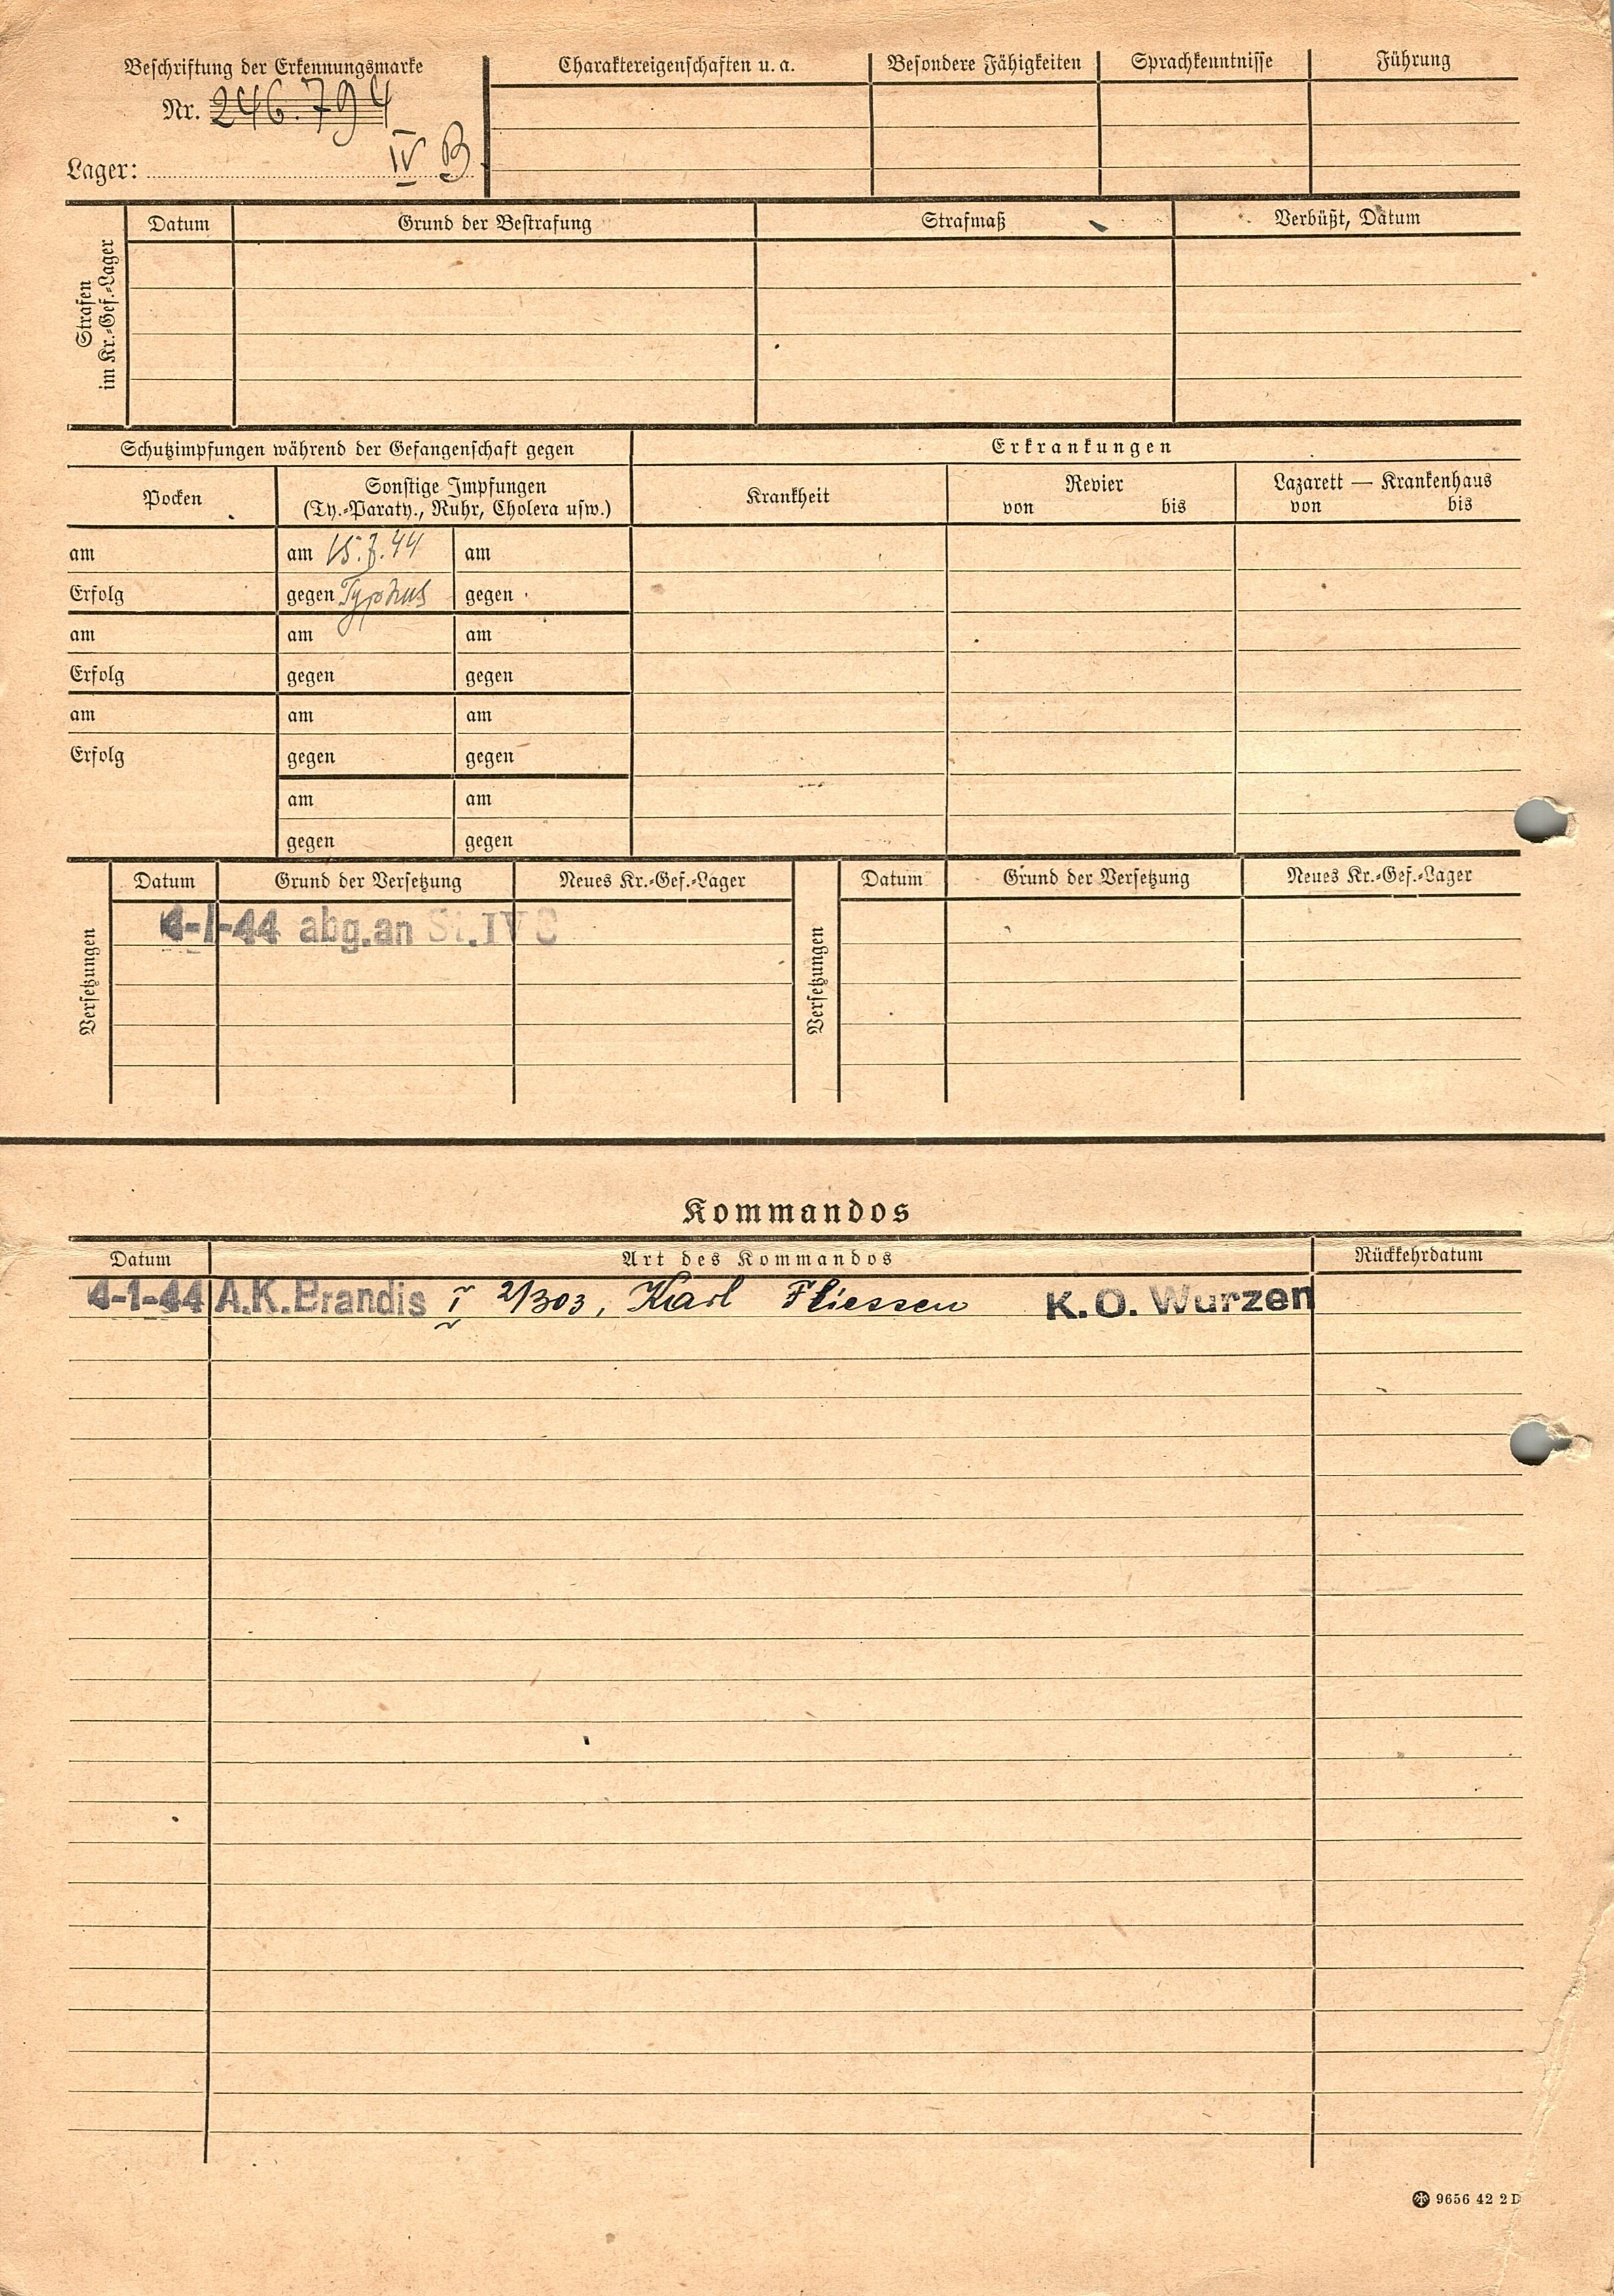 Beschriftung der Erkennungsmarke
Nr. 246.794
Lager: IV B
Charaktereigenschaften u. a. Besondere Fähigkeiten Sprachkenntnisse Führung
Strafen
im Kr.-Gef.-Lager
Datum Grund der Bestrafung Strafmaß Verbüßt, Datum
Schutzimpfungen während der Gefangenschaft gegen
Erkrankungen
Pocken
Sonstige Impfungen
(Ty.-Paraty., Ruhr, Cholera usw.)
Krankheit
Revier
von bis
Lazarett — Krankenhaus
von bis
am am 44 am
Erfolg gegen Typhus gegen
am am am
Erfolg gegen gegen
am am am
Erfolg gegen gegen
am am
gegen gegen
Versetzungen
Datum Grund der Versetzung Neues Kr.-Gef.-Lager
4-1-44 abg.an St.IV
Versetzungen
Datum Grund der Versetzung Neues Kr.-Gef.-Lager
Kommandos
Datum Art des Kommandos Rückkehrdatum
4-1-44 A.K.Brandis I 2/303, Karl Fliessen K.O. Wurzen
9656 42 2 D